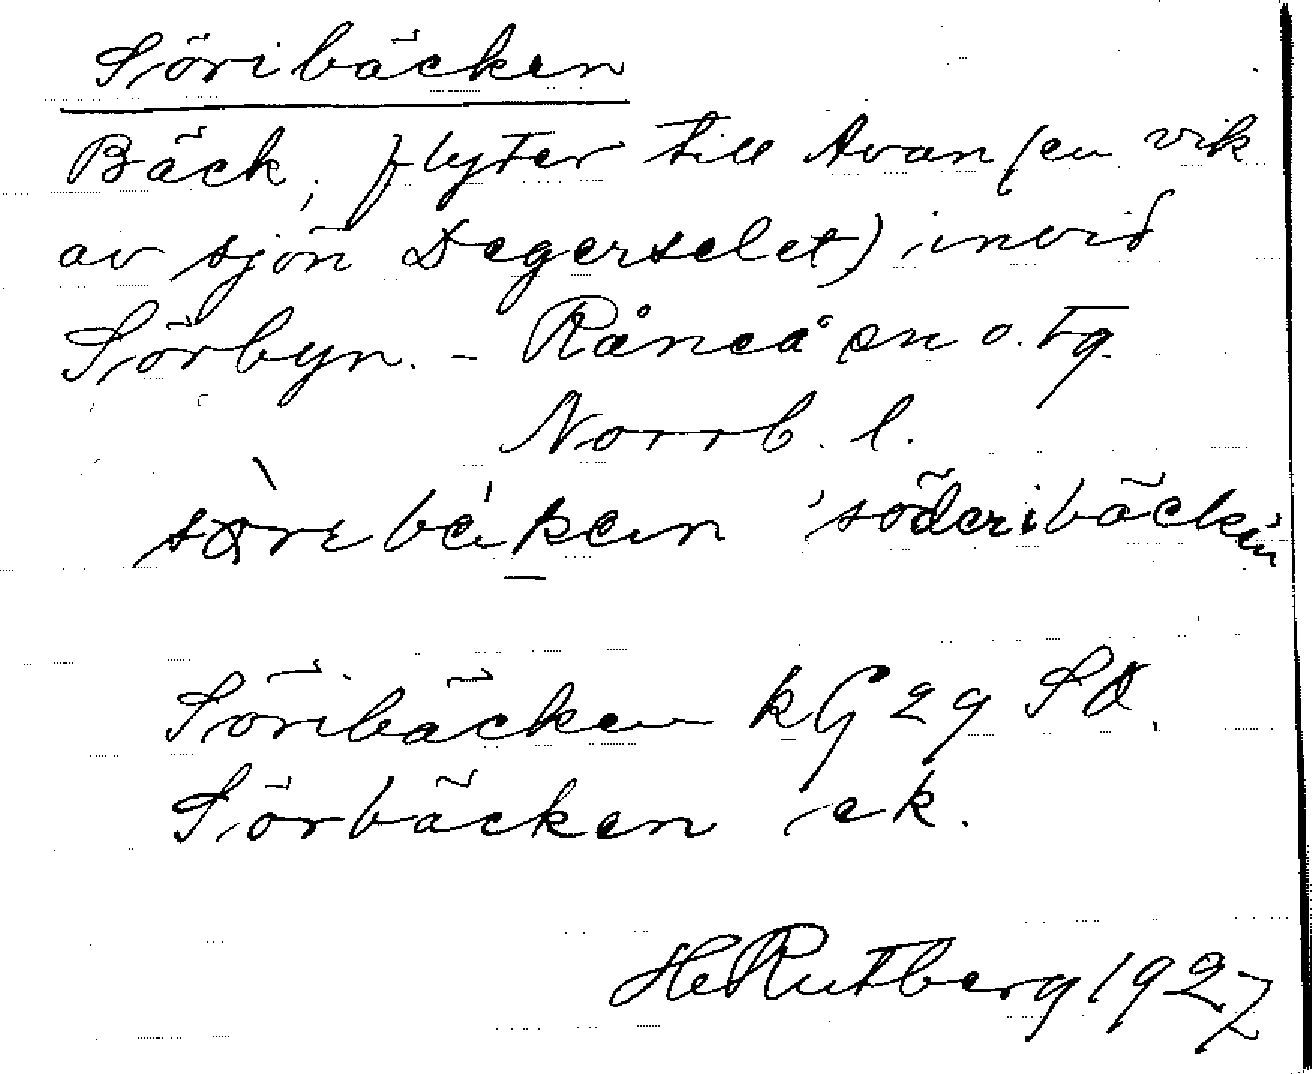 Söribäcken
Bäck, flyter till Avan (en vik
av sjön Degerselet) invid
Sörbyn. - Råneå sn o. tg
Norrb. l.
'söderibäcken
Söribäcken kG 29 SO.
Sörbäcken ek.
HeRutberg 1927